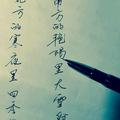 南方的艳阳里大雪纷
北方的寒夜里四季